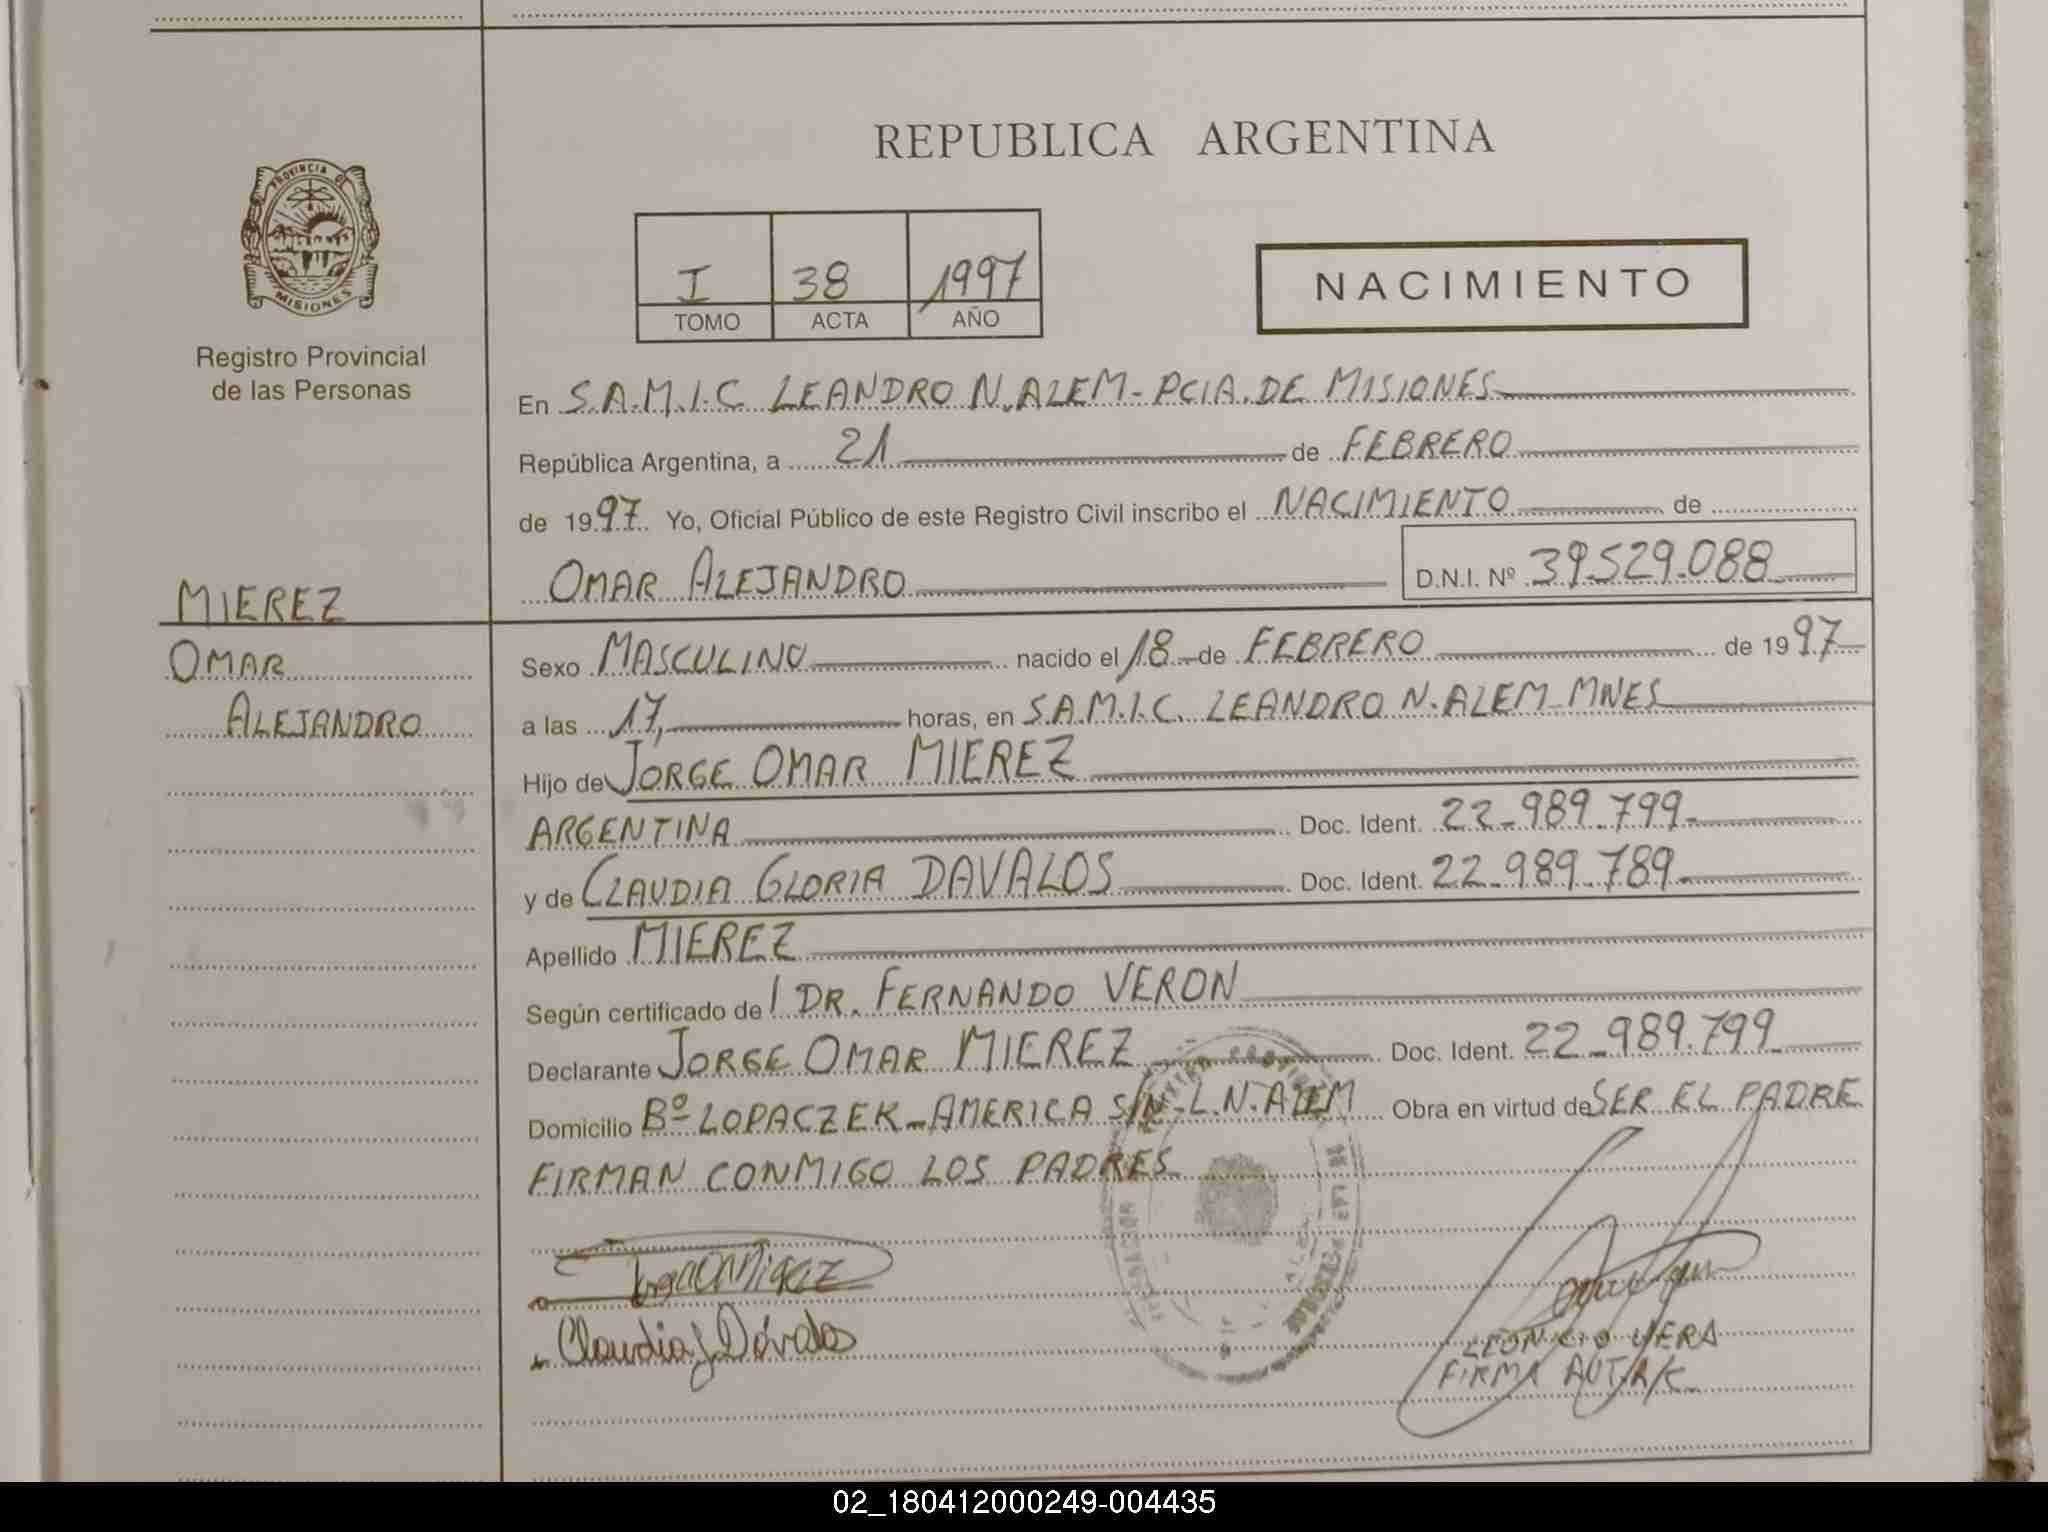 REPUBLICA ARGENTINA
PROVINCIA DE
MISIONES
Registro Provincial
de las Personas
I 38 1997
TOMO ACTA AÑO
NACIMIENTO
En S.A.M.I.C LEANDRO N. ALEM - PCIA. DE MISIONES
República Argentina, a 21 de FEBRERO
de 1997 Yo, Oficial Público de este Registro Civil inscribo el NACIMIENTO de
OMAR ALEJANDRO D.N.I. Nº 39.529.088
MIEREZ
OMAR
ALEJANDRO
Sexo MASCULINO nacido el 18 de FEBRERO de 1997
a las 17, horas, en S.A.M.I.C. LEANDRO N. ALEM - MNES
Hijo de JORGE OMAR MIEREZ
ARGENTINA Doc. Ident. 22-989.799-
y de CLAUDIA GLORIA DAVALOS Doc. Ident. 22-989.789-
Apellido MIEREZ
Según certificado de l DR. FERNANDO VERON
Declarante JORGE OMAR MIEREZ Doc. Ident. 22-989.799
Domicilio Bº LOPACZEK - AMERICA S/N - L.N. ALEM Obra en virtud de SER EL PADRE
FIRMAN CONMIGO LOS PADRES
Claudia G Dávalos
LEONCIO VERA
FIRMA
02_180412000249-004435